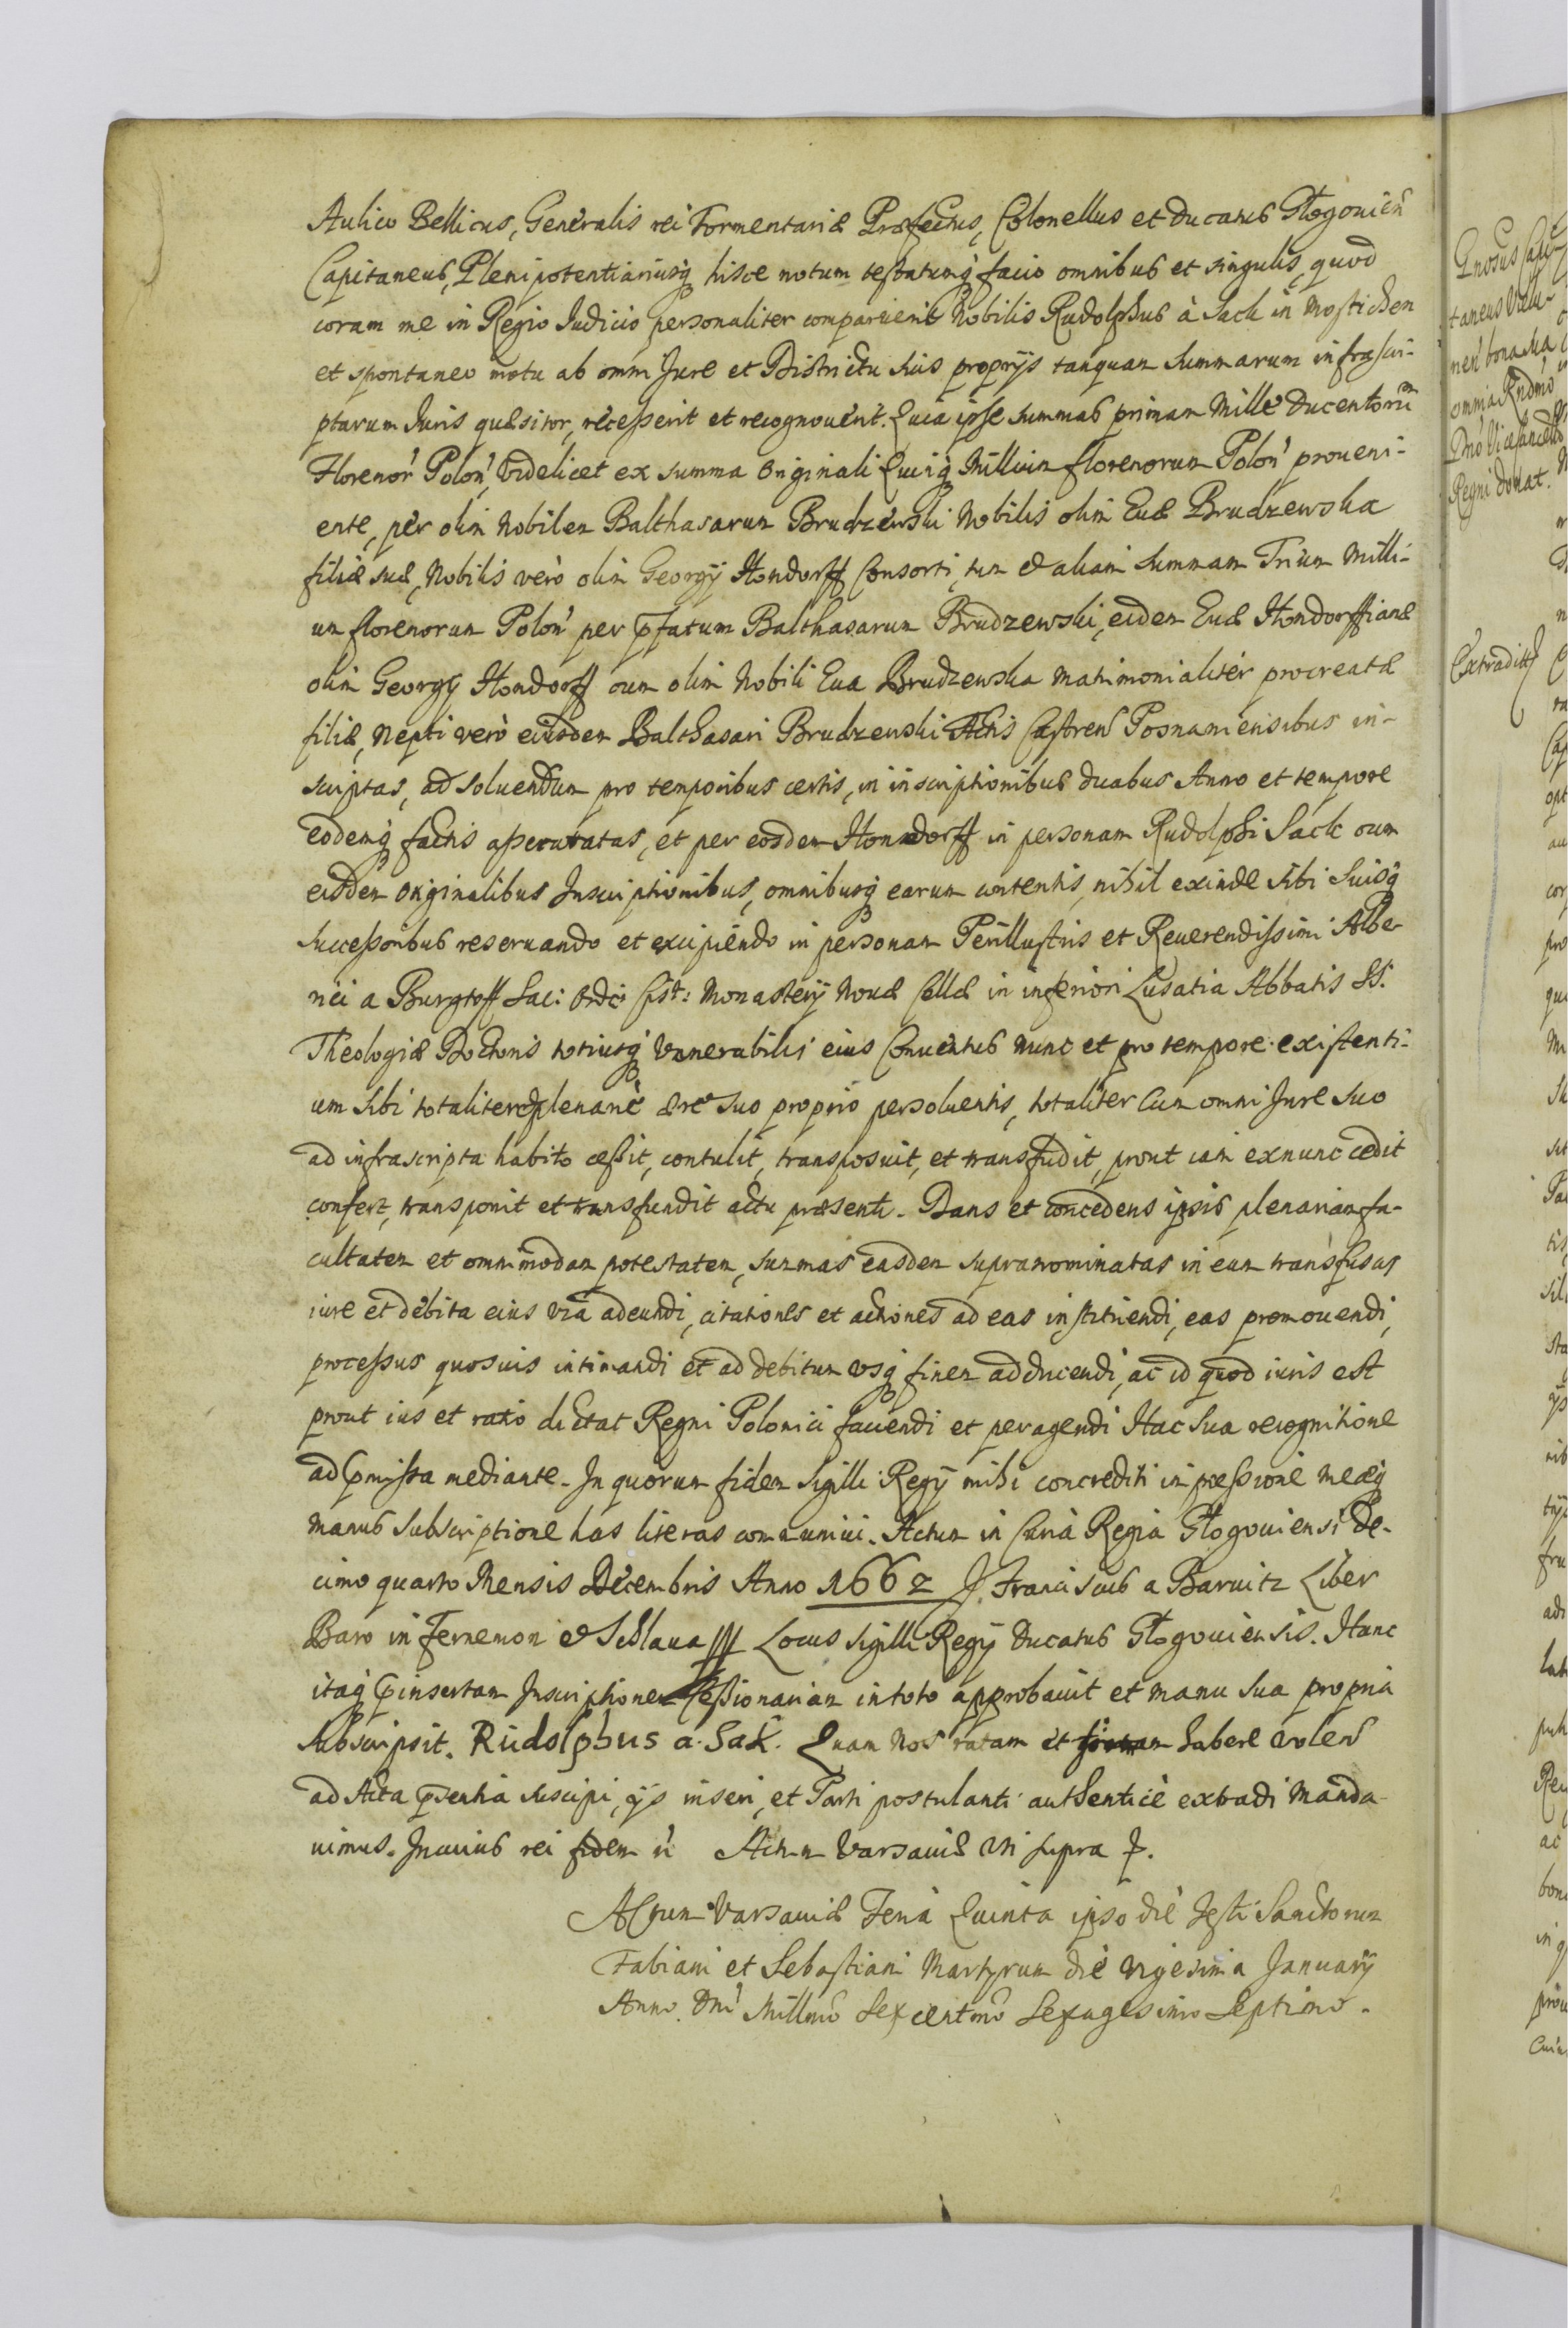 Aulico Bellicus, Generalis rei Tormentariæ Præfectus, Colonellus et Ducatus Glogouien
Capitaneus, Plenipotentiariusq hisce notum testatumq facio omnibus et singulis, quod
coram me in Regio Judicio personaliter comparuerit Nobilis Rudolphus à Sack in Mostichen
et spontaneo motu ab omni Jure et Districtu suis proprijs tanquam summarum infrascri-
ptarum Juris quæsitor, recesserit et recognouerit. Quia ipse summas primam Mille Ducentorū
Florenor Polon, Videlicet ex summa originali Quinq Millium florenorum Polon proueni-
ente, per olim Nobilem Balthasarum Brudzewski Nobilis olim Euæ Brudzewska
filiæ suæ, Nobilis verò olim Georgij Hondorff Consorti, tum et aliam summam Trium Milli-
um florenorum Polon per pfatum Balthasarum Brudzewski, eidem Euæ Hondorffianæ
olim Georgij Hondorff cum olim Nobili Eua Brudzewska matrimonialiter procreatæ
filiæ, Nepti verò eiusdem Balthasari Brudzewski Actis Castren Posnaniensibus in-
scriptas, ad soluendum pro temporibus certis, in inscriptionibus duabus Anno et tempore
eodemq factis assecuratas, et per eosdem Hondorff in personam Rudolphi Sack cum
eisdem Originalibus Inscriptionibus, omnibusq earum contentis, nihil exinde sibi suisq
successoribus reseruando et excipiendo in personam Perillustris et Reuerendissimi Albe
rici a Burgtoff Sac: Ordi: Cist: Monasterij Nouæ Cellæ in inferiori Lusatia Abbatis SS.
Theologiæ Doctoris totiusq Venerabilis eius Conuentus nunc et pro tempore existenti-
um sibi totaliter et plenariè ære suo proprio persoluentis, totaliter cum omni Jure suo
ad infrascripta habito cessit, contulit, transposuit, et transfudit, prout iam exnunc cedit
confert, transponit et transfundit actu præsenti. Dans et concedens ipsis plenariam fa-
cultatem et omnimodam potestatem, summas easdem supranominatas in eum transfusas
iure et debita eius via adeundi, citationes et actiones ad eas instituendi, eas promouendi,
processus quosuis intimandi et ad debitum vsq finem adducendi, ac id quod iuris est
prout ius et ratio dictat Regni Polonici faciendi et peragendi Hac sua recognitione
ad pmissa mediante. In quorum fidem Sigilli Regij mihi concrediti impressione meæq
manus subscriptione has literas communiui. Actum in Curia Regia Glogouiensi De-
cimo quarto Mensis Decembris Anno 1662 J. Franciscus a Baruitz Liber
Baro in Fernemon et Schlaua Locus Sigilli Regij Ducatus Glogouiensis. Hanc
itaq pinsertam Inscriptionem Cessionariam in toto approbauit et manu sua propria
subscripsit. Rudolphus a Sak. Quam Nos ratam et habere volen
ad Acta psentia suscipi, ijs inseri, et Parti postulanti authenticè extradi manda-
uimus. In cuius rei fidem Actum Varsauiæ Vti supra
Actum Varsauiæ Feria Quinta ipso die Festi Sanctorum
Fabiani et Sebastiani Martyrum die vigesima Januarij
Anno Dni Millmo Sexcentmo Sexagesimo Septimo.
Gnosus Capi-
taneus
nen bona sua
omnia Rndmo
Dno Vicecancell
Regni donat.
Extradit